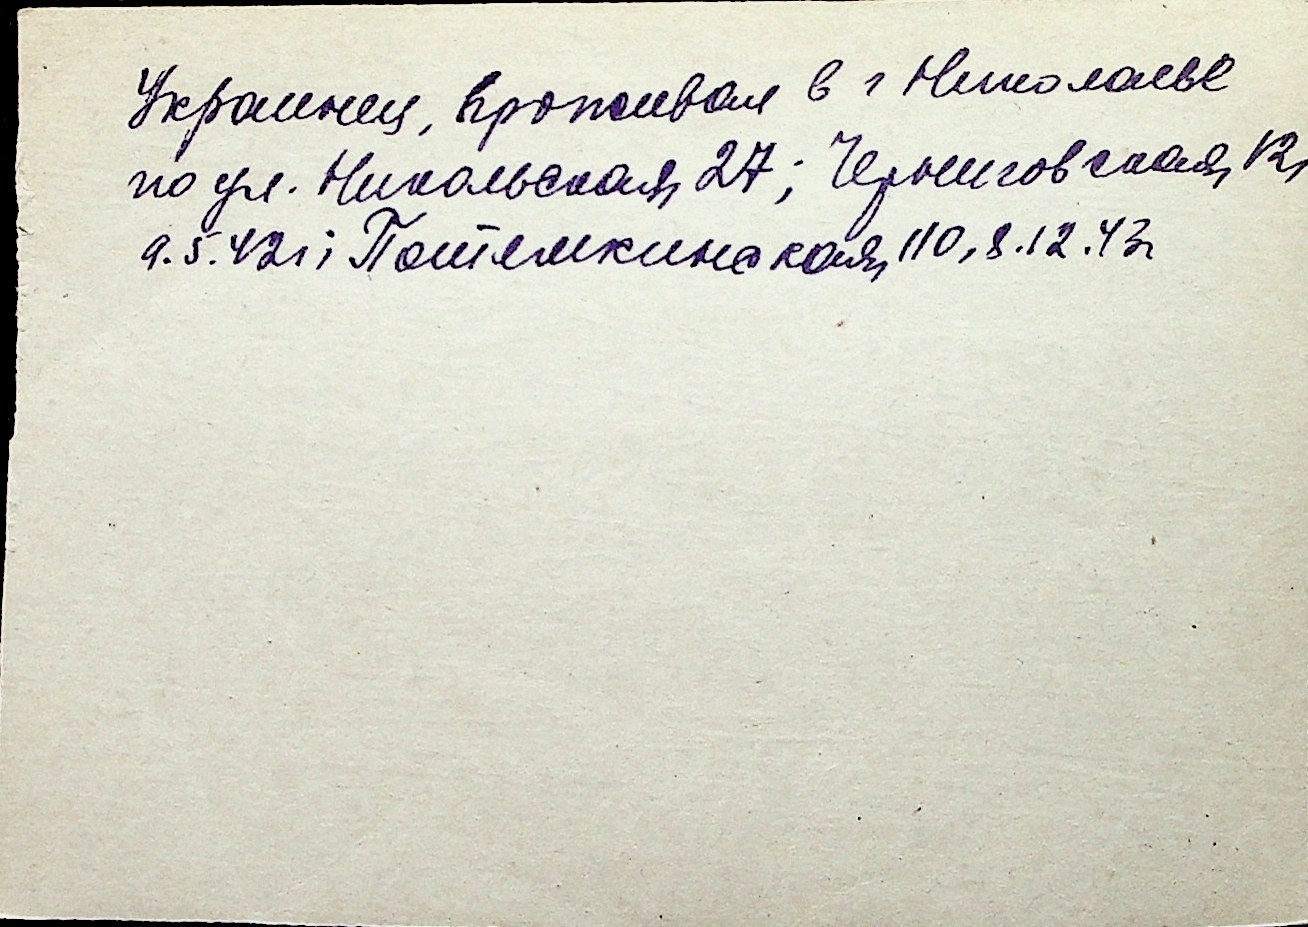 Украинец, проживал в г Николаеве
по ул. Никольская, 27; Черниговская, 12,
9.5.42г; Потемкинская, 110, 8.12.43г